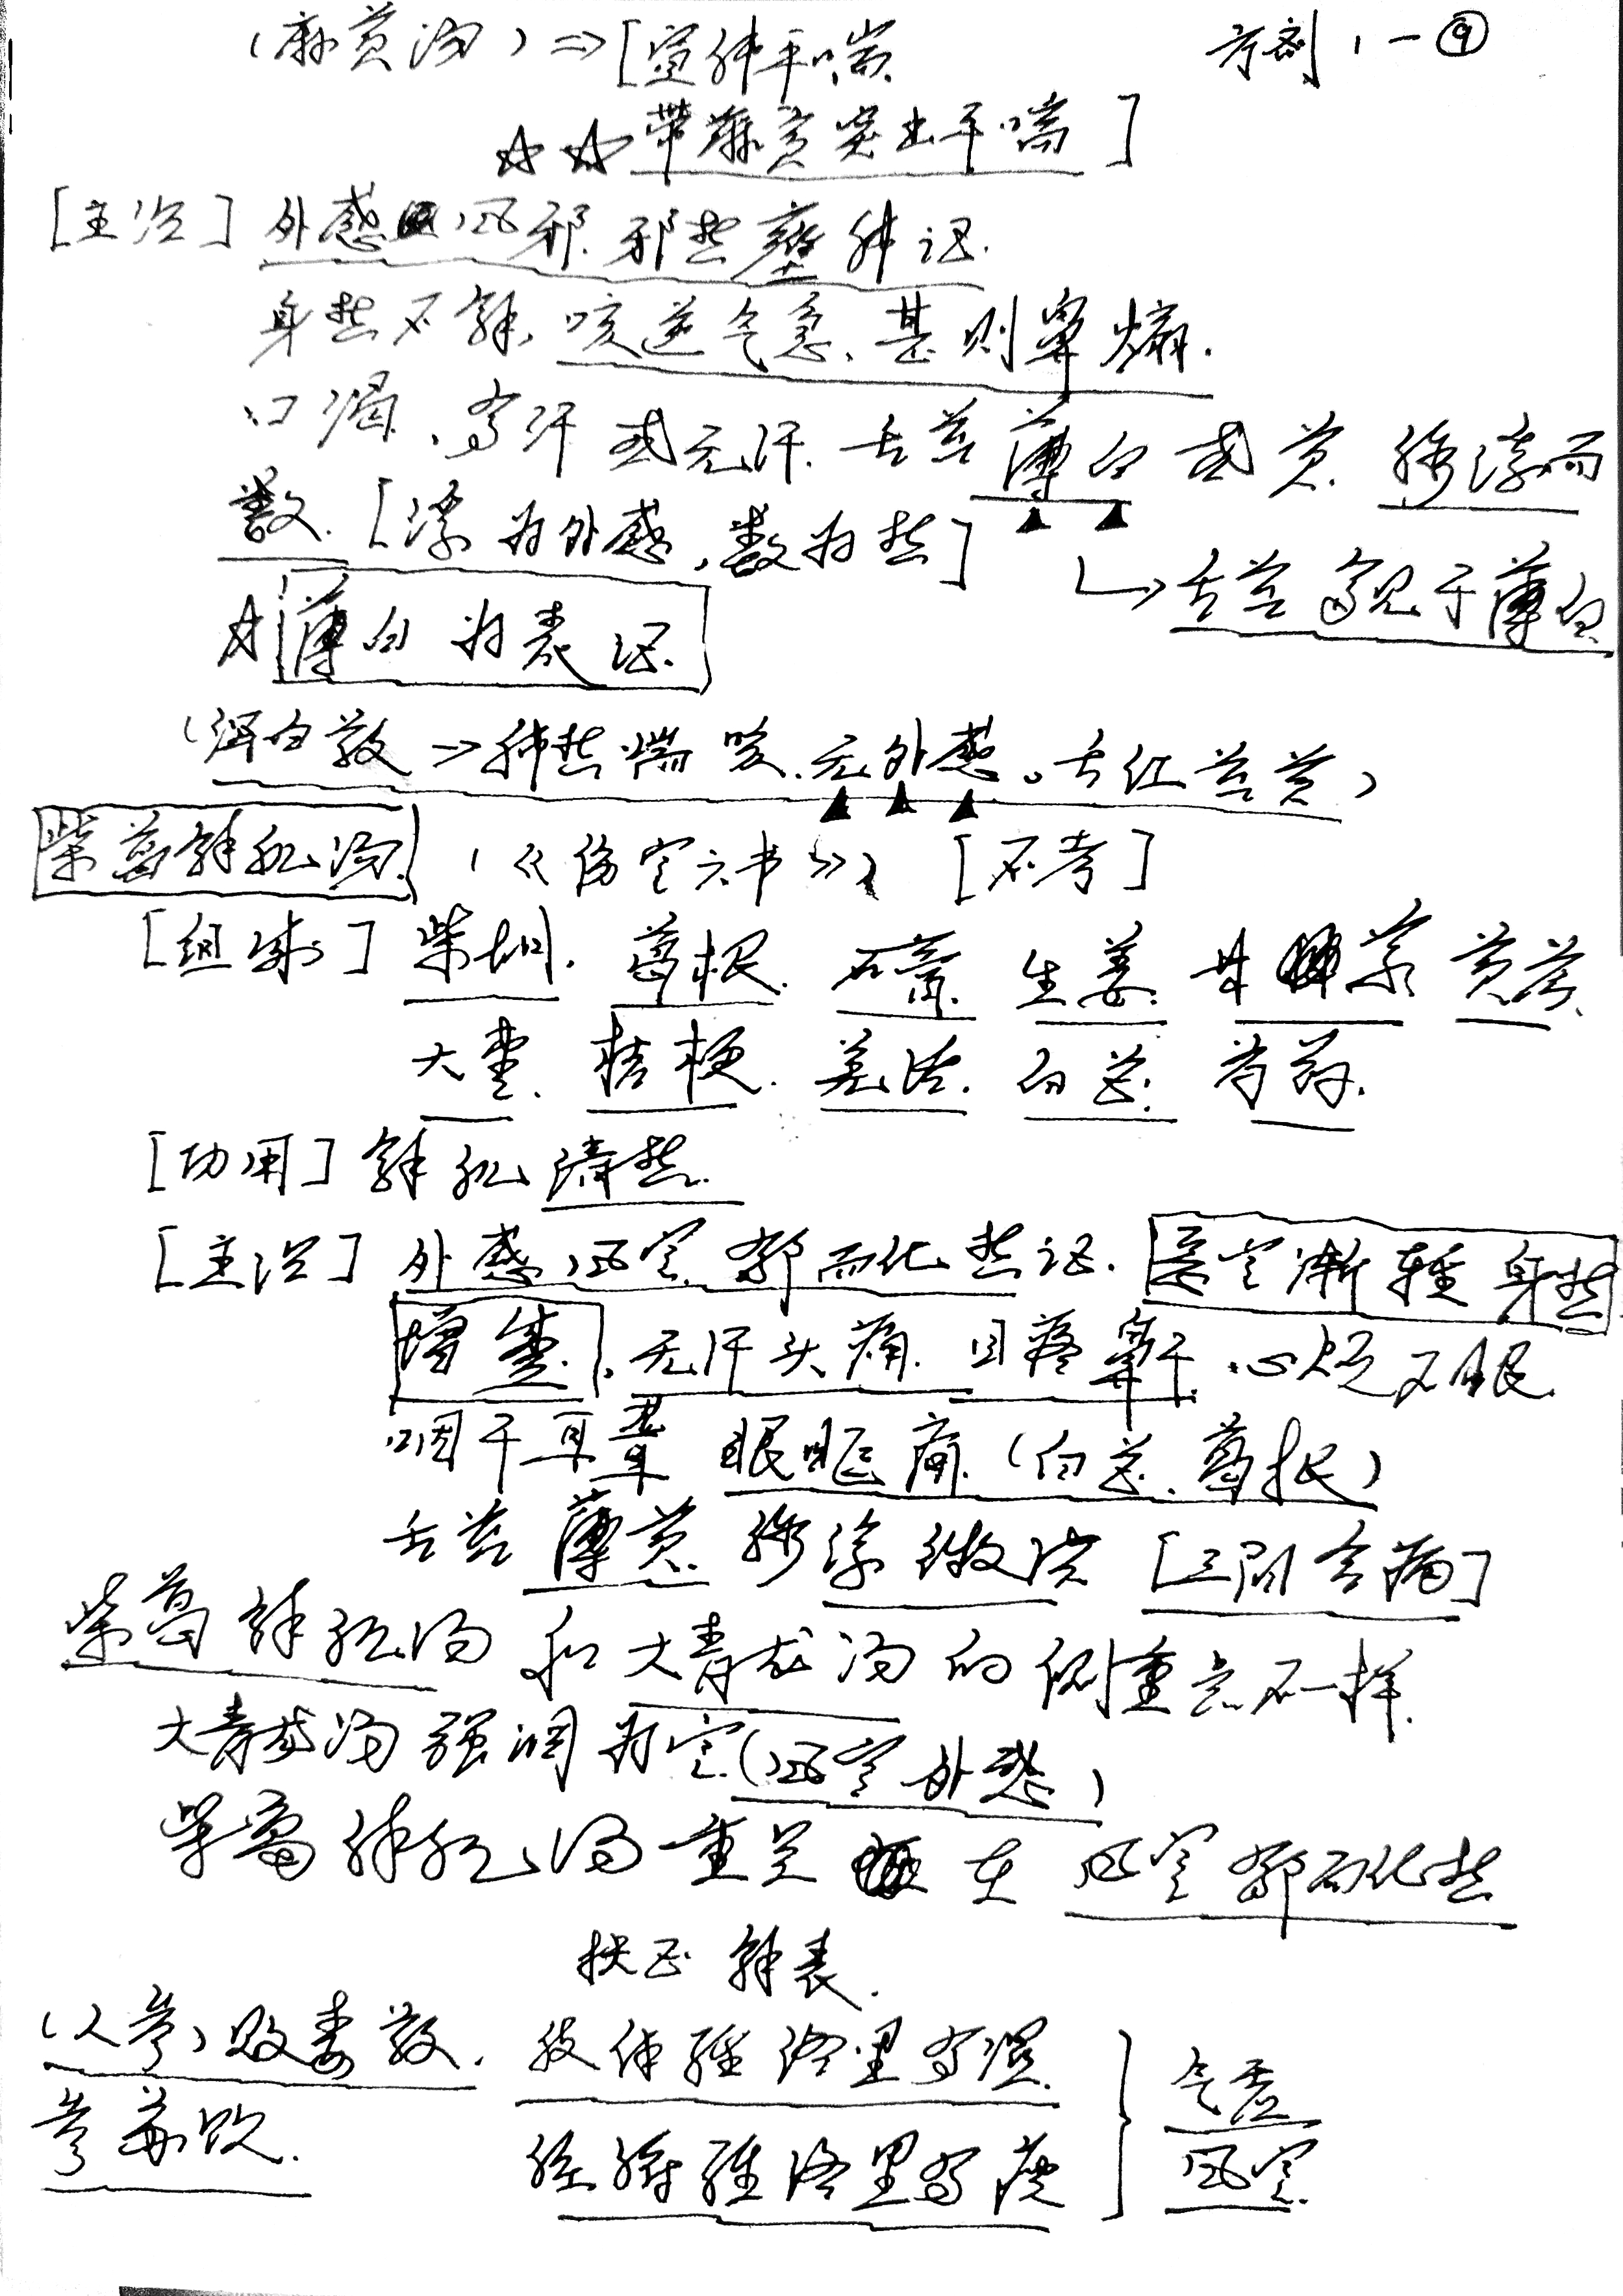 (麻黄汤) ⇒ [宣肺平喘 方剂 1-⑨
☆☆ 带麻黄突出平喘]
[主治] 外感风邪.邪热壅肺证.
身热不解,咳逆气急,甚则鼻煽.
口渴,有汗或无汗.舌苔薄白或黄.脉浮而
数.[浮为外感,数为热] ↳舌苔多见于薄白
☆薄白为表证.
(泻白散→肺热喘咳.无外感。舌红苔黄)
柴葛解肌汤. (《伤寒六书》) [不考]
[组成] 柴胡.葛根.石膏.生姜.甘草 黄芩.
大枣.桔梗.羌活.白芷.芍药.
[功用] 解肌清热.
[主治] 外感风寒郁而化热证.恶寒渐轻身热
增重.无汗头痛.目疼鼻干.心烦不眠.
咽干耳聋 眼眶痛.(白芷.葛根)
舌苔薄黄.脉浮微洪 [三阳合病]
柴葛解肌汤和大青龙汤的侧重点不一样.
大青龙汤强调为寒(风寒外感)
柴葛解肌汤重点在风寒郁而化热
扶正解表.
(人参)败毒散. 肢体经络里有湿. 气虚
参苏饮. 经络里有痰 风寒.